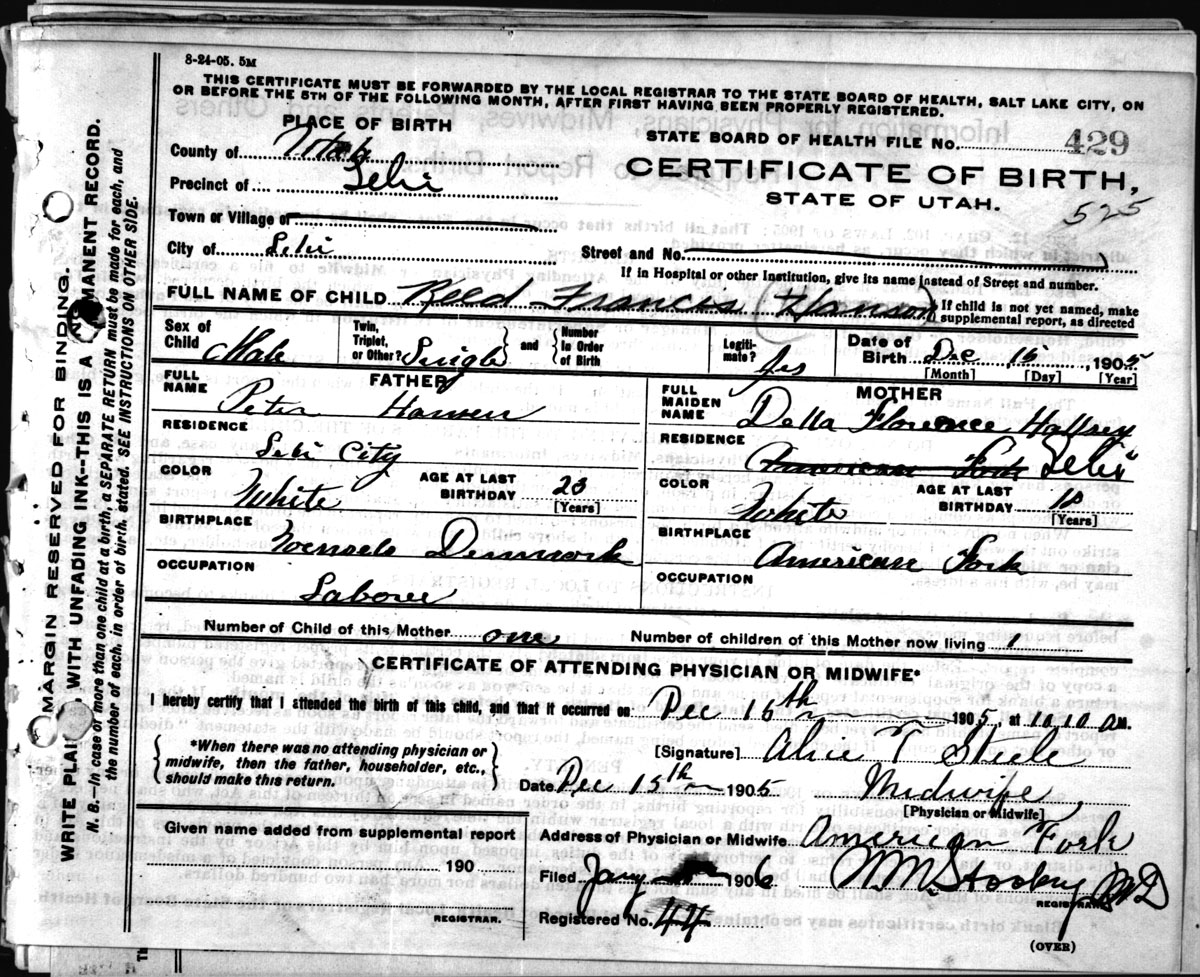 8-24-05. 5M
THIS CERTIFICATE MUST BE FORWARDED BY THE LOCAL REGISTRAR TO THE STATE BOARD OF HEALTH, SALT LAKE CITY, ON
OR BEFORE THE 5TH OF THE FOLLOWING MONTH, AFTER FIRST HAVING BEEN PROPERLY REGISTERED.
PLACE OF BIRTH
STATE BOARD OF HEALTH FILE NO. 429
County of Utah
CERTIFICATE OF BIRTH,
Precinct of Lehi
STATE OF UTAH.
525
Town or Village of
City of Lehi
Street and No.
If in Hospital or other Institution, give its name instead of Street and number.
FULL NAME OF CHILD Reed Francis (Hanson)
If child is not yet named, make
supplemental report, as directed
Sex of Child Male
Twin, Triplet, or Other? Single
and Number in Order of Birth
Legitimate? Yes
Date of Birth Dec 16, 1905
[Month] [Day] [Year]
FATHER
FULL NAME Peter Hansen
RESIDENCE Lehi City
COLOR White
AGE AT LAST BIRTHDAY 23
[Years]
BIRTHPLACE Denmark
OCCUPATION Laborer
MOTHER
FULL MAIDEN NAME Della Florence
RESIDENCE American Fork Lehi
COLOR White
AGE AT LAST BIRTHDAY
[Years]
BIRTHPLACE American Fork
OCCUPATION
Number of Child of this Mother one
Number of children of this Mother now living 1
CERTIFICATE OF ATTENDING PHYSICIAN OR MIDWIFE*
I hereby certify that I attended the birth of this child, and that it occurred on Dec 16th 1905, at 10.10 a M.
*When there was no attending physician or
midwife, then the father, householder, etc.,
should make this return.
[Signature] Alice T Steele
Date Dec 15th 1905 Midwife
[Physician or Midwife]
Given name added from supplemental report
190
REGISTRAR.
Address of Physician or Midwife American Fork
Filed Jany 1906
REGISTRAR
M D
Registered No. 44
(OVER)
MARGIN RESERVED FOR BINDING.
WRITE PLAINLY WITH UNFADING INK--THIS IS A PERMANENT RECORD.
N. B.--In case of more than one child at a birth, a SEPARATE RETURN must be made for each, and
the number of each, in order of birth, stated. SEE INSTRUCTIONS ON OTHER SIDE.